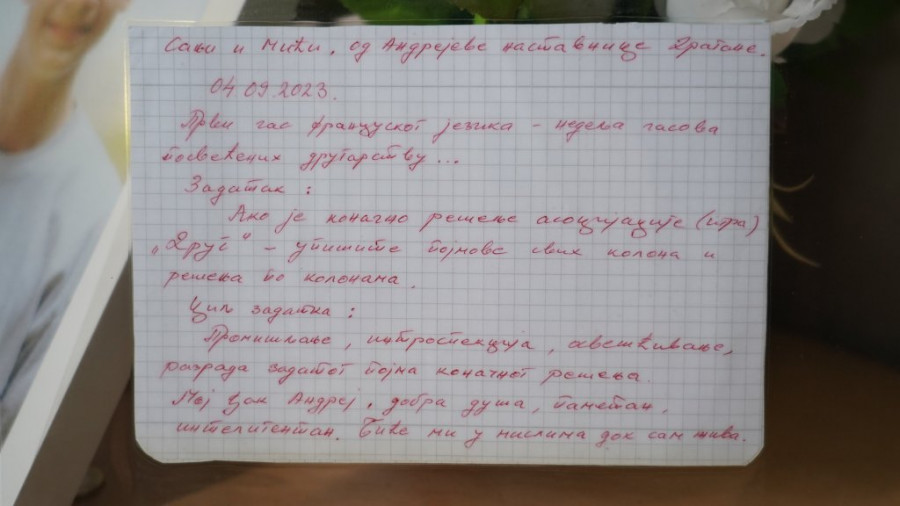 Сањи и Мићи, од Андрејеве наставнице Драгане.
04.09.2023.
Први час француског језика - недеља часова
посвећених другарству...
Задатак :
Ако је коначно решење асоцијације (игра)
„Друг“ - упишите појмове свих колона и
решења по колонама.
Циљ задатка :
Промишљање, интроспекција, освешћивање,
разрада задатог појма коначног решења.
Мој ђак Андреј, добра душа, паметан,
интелигентан. Биће ми у мислима док сам жива.